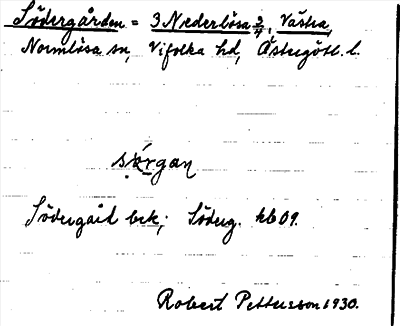 Södergården = 3 Nederlösa 3/4, Västra,
Normlösa sn, Vifolka hd, Östergötl. l.
sǫ́rgan
Södergård bek; Söderg. kb 09.
Robert Pettersson 1930.